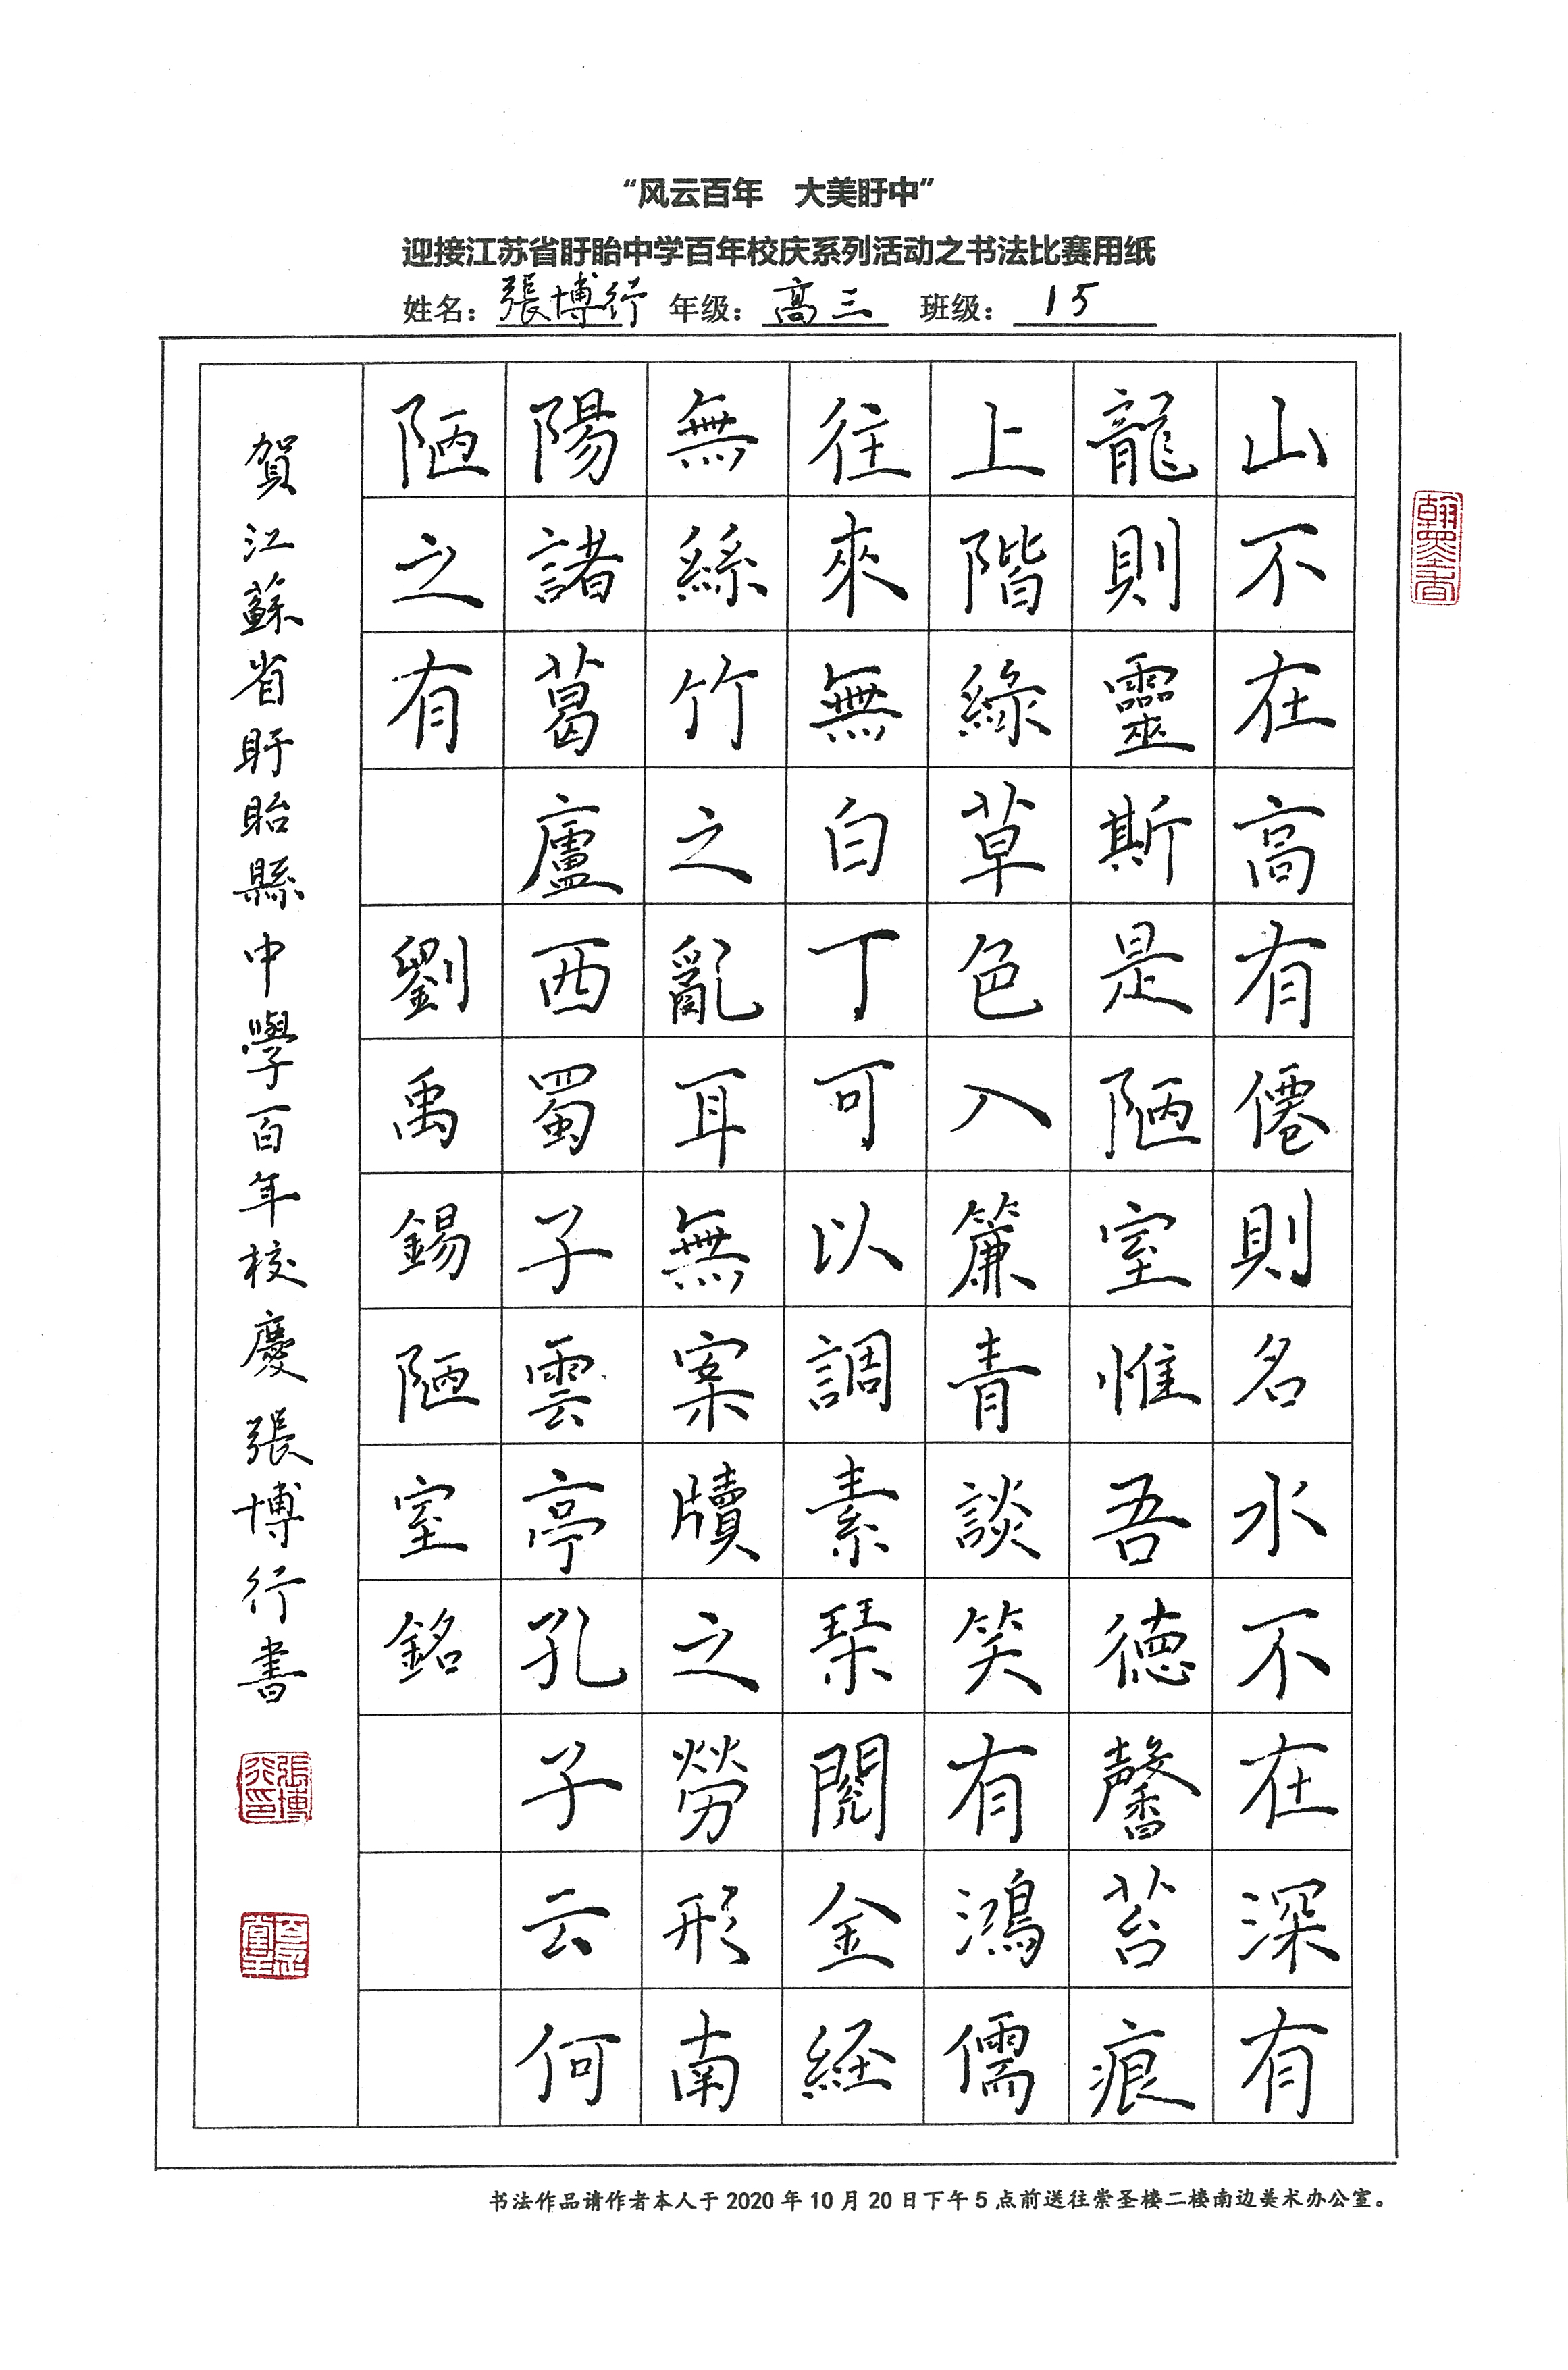 “风云百年 大美盱中”
迎接江苏省盱眙中学百年校庆系列活动之书法比赛用纸
姓名：張博行 年级：高三 班级：15
翰墨香
山不在高有僊則名水不在深有
龍則靈斯是陋室惟吾德馨苔痕
上階綠草色入簾青談笑有鴻儒
往來無白丁可以調素琹閱金経
無絲竹之亂耳無案牘之勞形南
陽諸葛廬西蜀子雲亭孔子云何
陋之有 劉禹錫陋室銘
賀江蘇省盱眙縣中學百年校慶張博行書
張博行印
书法作品请作者本人于 2020 年 10 月 20 日下午 5 点前送往崇圣楼二楼南边美术办公室。